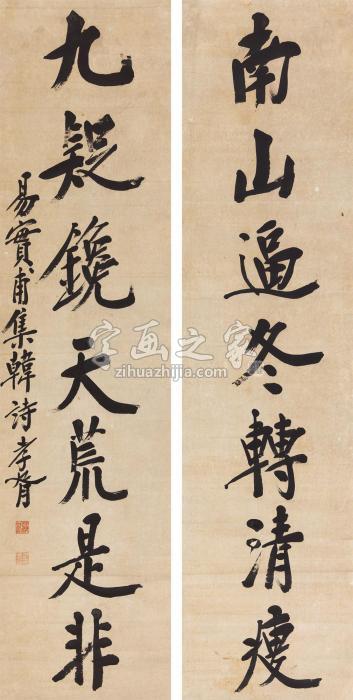 南山逼冬轉清瘦
九疑鑱天荒是非
易實甫集韓詩 孝胥
字画之家
zihuazhijia.com